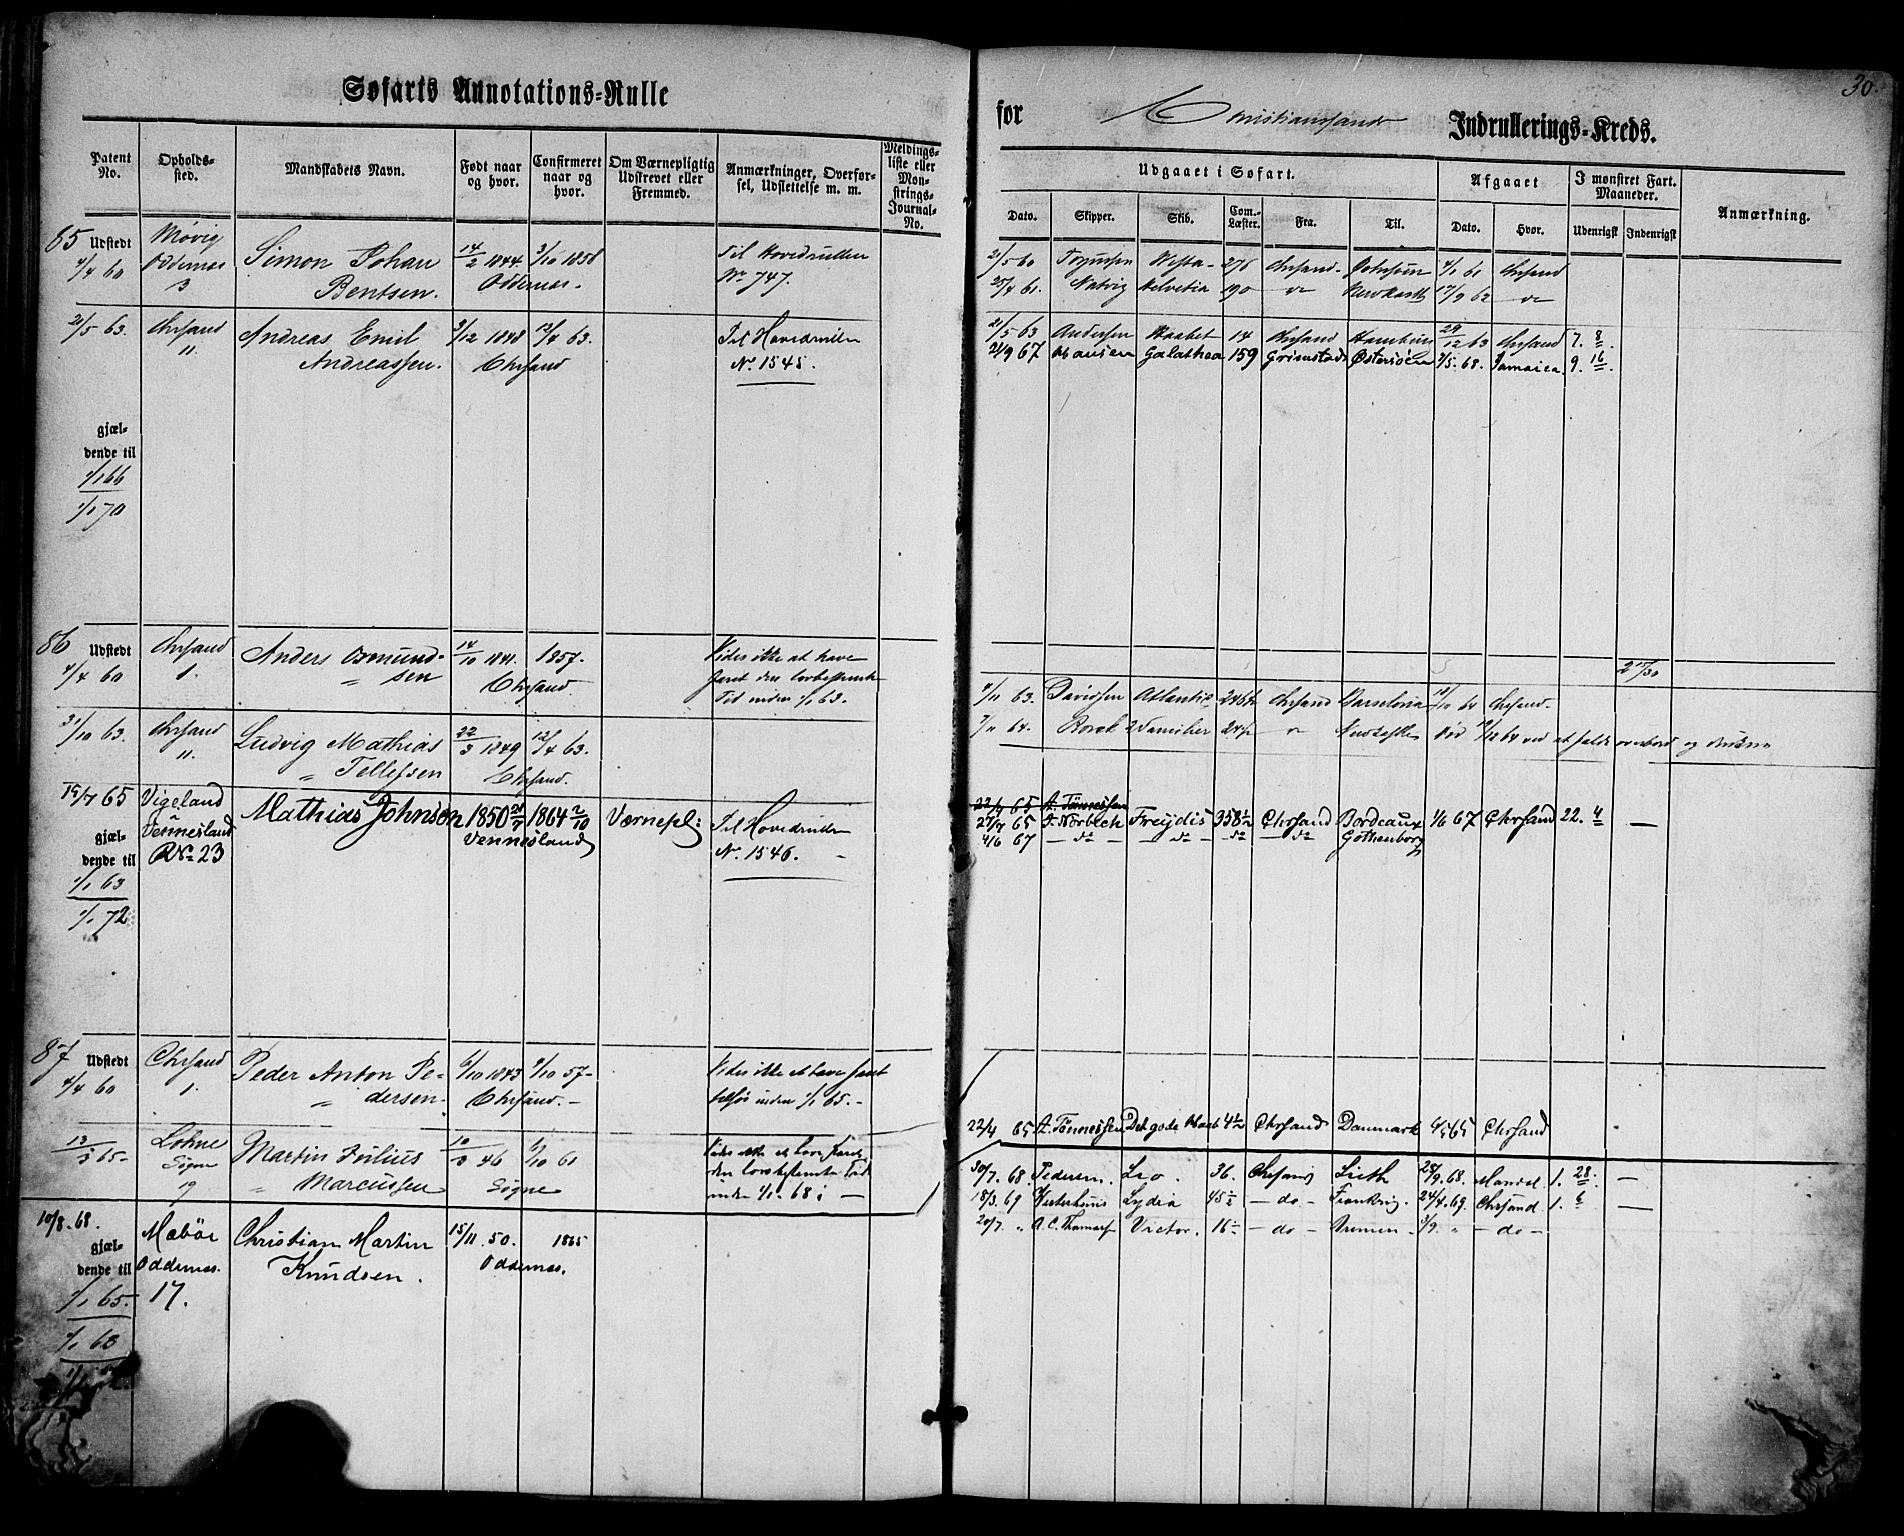 Søfarts Annotations-Rulle
Patent No.
Opholds-sted.
Mandskabets Navn.
Født naar og hvor.
Confirmeret naar og hvor.
Om Værnepligtig Udskrevet eller Fremmed.
Anmærkninger, Overførsel, Udslettelse m. m.
Meldings-liste eller Mon-strings-Journal-No.
85 Udstedt 4/4 60
Møvig Oddernes 3
Simon Johan Bentsen.
14/2 1844. Oddernes.
3/10 1858
Til Hovedrullen No 747.
21/5 63.
Chrsand 11.
Andreas Emil Andreassen.
3/12 1848 Chrsand
12/4 63.
Til Hovedrullen No. 1545.
gjæl-
dende til
1/1 66
1/1 70
86 Udstedt 4/4 60
Chrsand 1.
Anders Osmund-
" sen
14/10 1841. Chrsand.
1857.
Vides ikke at have
faret den lovbestemte
Tid inden 1/1 63.
31/10 63.
Chrsand 11.
Ludvig Mathias
" Tellefsen
22/3 1849 Chrsand.
12/4 63.
15/7 65
Vigeland Vennesland RNo 23
Mathias Johnsen
1850 21/7 Vennesland
1864 2/10
Værnepl:
Til Hovedrullen No. 1546.
gjæl-
dende til
1/1 63
1/1 72
87 Udstedt 4/4 60
Chrsand 1.
Peder Anton Pe-
" dersen.
6/10 1843 Chrsand.
4/10 57
Vides ikke at have faret
tilsøs inden 1/1 65.
13/3 65.
Løhne Søgne 19
Martin Julius
" Marcussen
10/3 46 Søgne
1/10 61
Vides ikke at have faret
den lovbestemte Tid
inden 1/1 68
10/8. 68.
Mæbøe Oddernes. 17.
Christian Martin
Knudsen.
15/11. 50. Oddernes.
1865
gjæl-
dende til
1/1 65.
1/1 68
for Christianssands Indrullerings-Kreds.
30.
Udgaaet i Søfart.
Afgaaet
I mønstret Fart. Maaneder.
Anmærkning.
Dato. Skipper. Skib. Com.-Læster. Fra. Til. Dato. Hvor. Udenrigsk Indenrigsk
2/5 60 Vesta 276 Chrsand 4/1 61 Chrsand
25/4 61. Natvig Helvetia 190 do 17/9 62 do
21/5 63 Andersen Haabet 14 Chrsand Hamburg 29/12 63 Chrsand 7. 8
21/9 67 Hansen Galathea 159 Grimstad Østersøen 2/5. 68. Jamaica. 9. 16
2 17/30
4/11 63. Davidsen Atlantic 246½ Chrsand Barselona 12/10 64 Chrsand.
7/11 64. 2 Familier 24½ do død 9/12 64 ved at falde overbord og
22/4 65 A. Tønnessen
27/7 65 J. Nørbech Freijdis 358½ Chrsand Bordeaux 4/6 67 Chrsand 22. 4 —
4/6 67 — do — — do — do — do — Gothenborg
22/4 65 A. Tønnessen Det gode Haab 4½ Chrsand Danmark 4/5 65 Chrsand
30/7. 68. Pedersen. Leo. 36. Chrsand Leith 28/9. 68. Mandal 1. 28. —
18/3. 69 Vesterhuus Lydia 45½ — do — Frankrig. 24/4. 69. Chrsand. 1. 6 —
20/7. " A. C. Thomas Victor. 16½ — do — Bremen. 3/9. " — do —